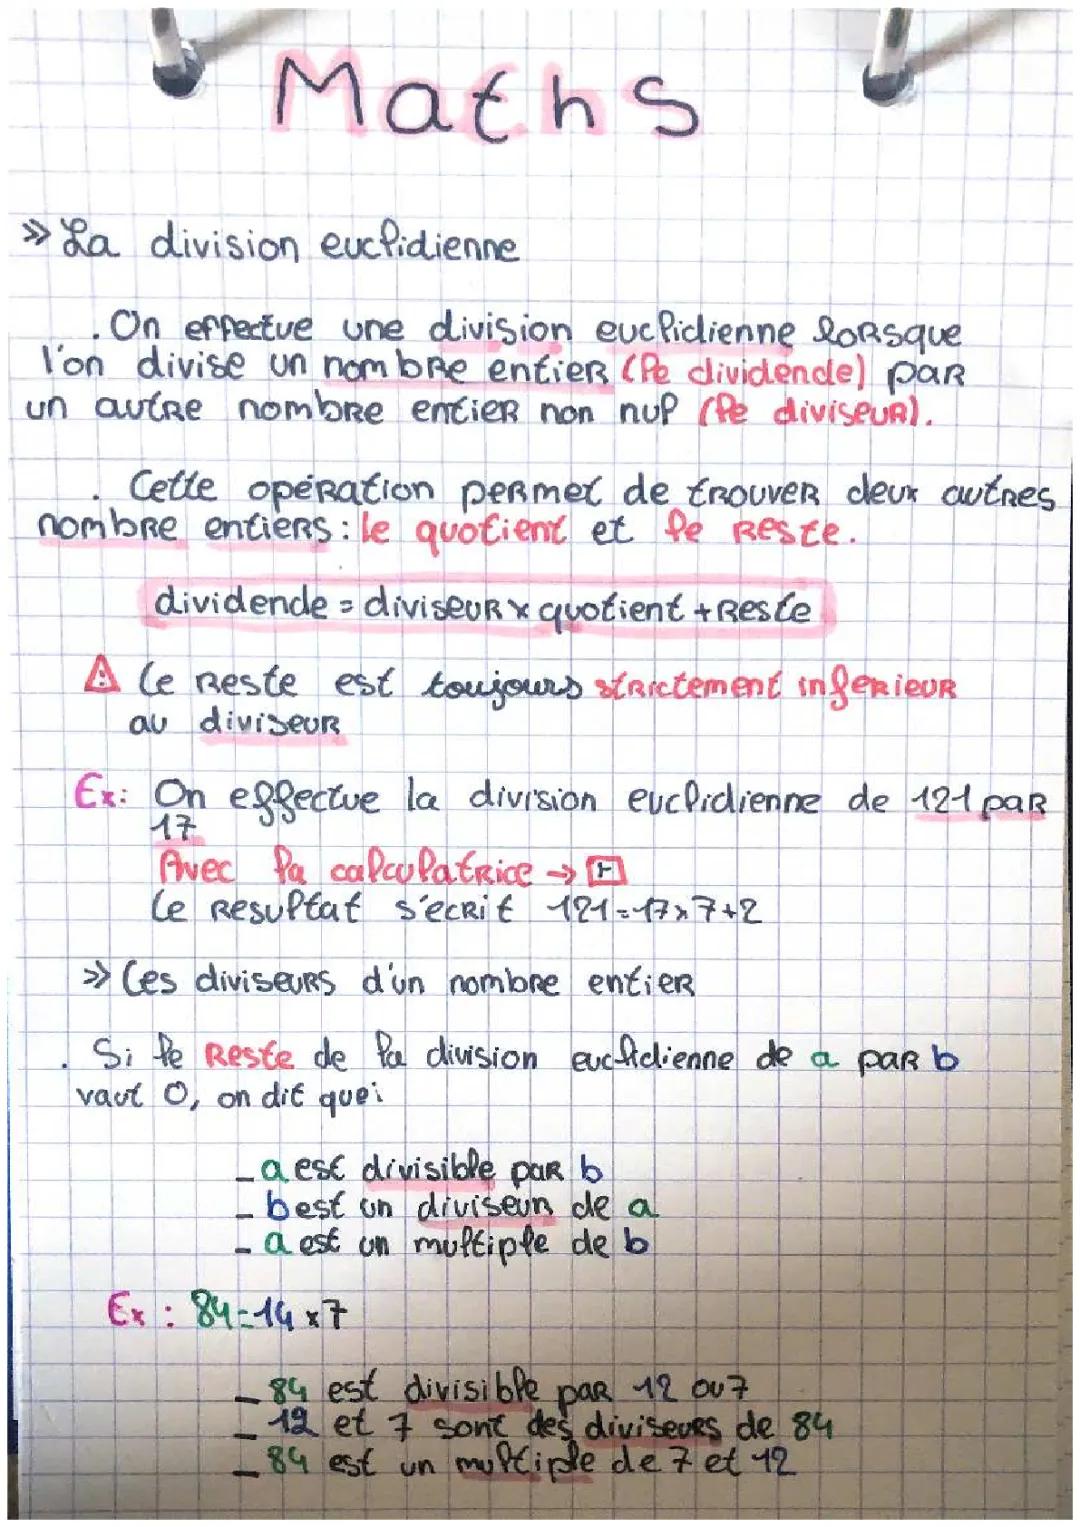 Maths
» La division euclidienne
. On effectue une division euclidienne lorsque
l'on divise un nombre entier (le dividende) par
un autre nombre entier non nul (le diviseur).
. Cette opération permet de trouver deux autres
nombre entiers : le quotient et le reste.
dividende = diviseur x quotient + reste
⚠ Le reste est toujours strictement inférieur
au diviseur
Ex: On effectue la division euclidienne de 121 par
17
Avec la calculatrice → ⊢
Le resultat s'écrit 121=17x7+2
» Les diviseurs d'un nombre entier
. Si le reste de la division euclidienne de a par b
vaut 0, on dit que:
- a est divisible par b
- b est un diviseur de a
- a est un multiple de b
Ex : 84=14x7
- 84 est divisible par 12 ou 7
- 12 et 7 sont des diviseurs de 84
- 84 est un multiple de 7 et 12